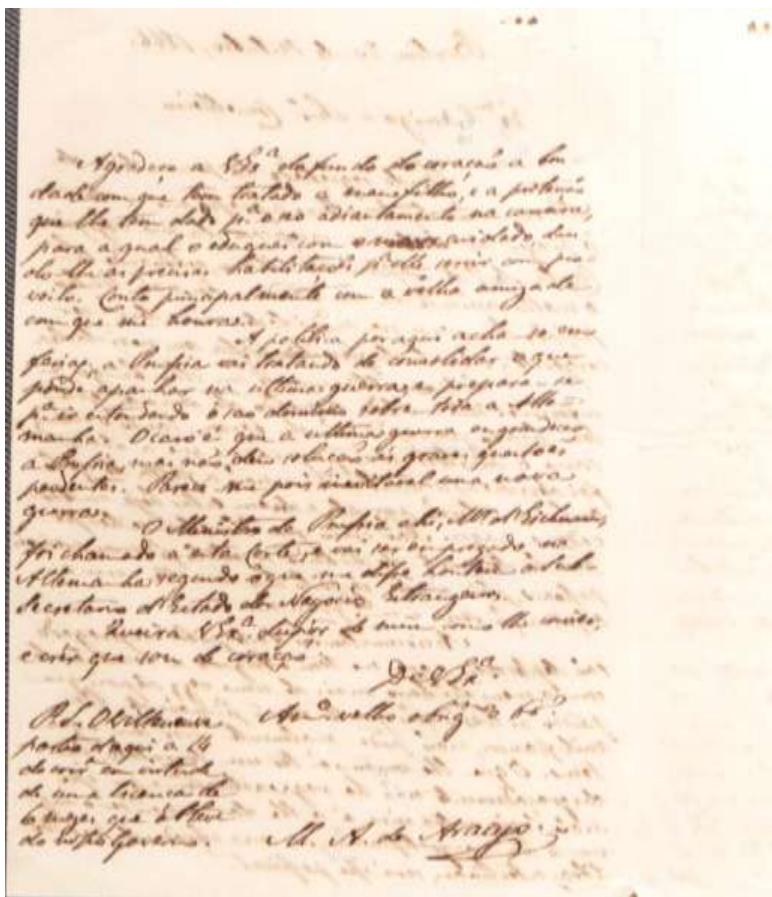 Agradeço a VEx.ª do fundo do coração a bon
dade com que tem tratado a meu filho, e a proteção
que lhe tem dado p.ª o seo adiantamento na carreira,
para a qual o eduquei com o maior cuidado, dan
do lhe as precisas habilitações p.ª elle servir com pro
veito. Conto principalmente com a velha amizade
com que me honra.
A politica por aqui acha-se em
ferias, a Prussia vai tratando de consolidar o que
poude apanhar na ultima guerra, e prepara-se
p.ª ir estendendo o seo dominio sobre toda a Alle
manha. O caso é que a ultima guerra engrandeceo
a Prussia, mas não deu solução ás graves questões
pendentes. Parece me pois inevitavel uma nova
guerra.
O Ministro de Prussia ahi, Mr. d'Eichmann,
foi chamado a esta Corte, e vai ser empregado na
Allemanha segundo o que me disse hontem o Sub-
Secretario d'Estado dos Negocios Estrangeiros.
Queira VEx.ª dispor de mim como lhe convier,
e crêr que sou de coração
De VEx.ª
Am.º velho e obrig.º
P.S. O Villeneuve
partio d'aqui a 14
do corr.e em virtude
de uma licença de
6 mezes que obteve
do nosso Governo.
M. A. de Araujo.